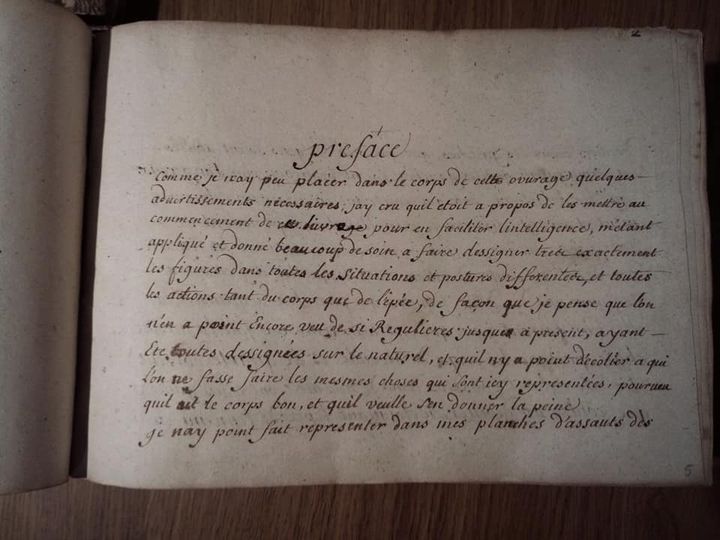 2
preface
Comme je n'ay peu placer dans le corps de cette ouvrage quelques
advertissements nécessaires, jay cru quil etoit a propos de les mettre au
commencement de ce Livrage pour en faciliter lintelligence, m'étant
appliqué et donné beaucoup de soin a faire dessigner trés exactement
les figures dans toutes les situations et postures differentes, et toutes
les actions tant du corps que de l'épée, de façon que je pense que lon
n'en a point Encore veu de si Regulieres jusques a present, ayant
Eté toutes dessignées sur le naturel, et quil ny a point décolier a qui
l'on ne fasse faire les mesmes choses qui sont icy representées, pourveu
quil ait le corps bon, et quil veulle s'en donner la peine
je nay point fait representer dans mes planches d'assauts des
5